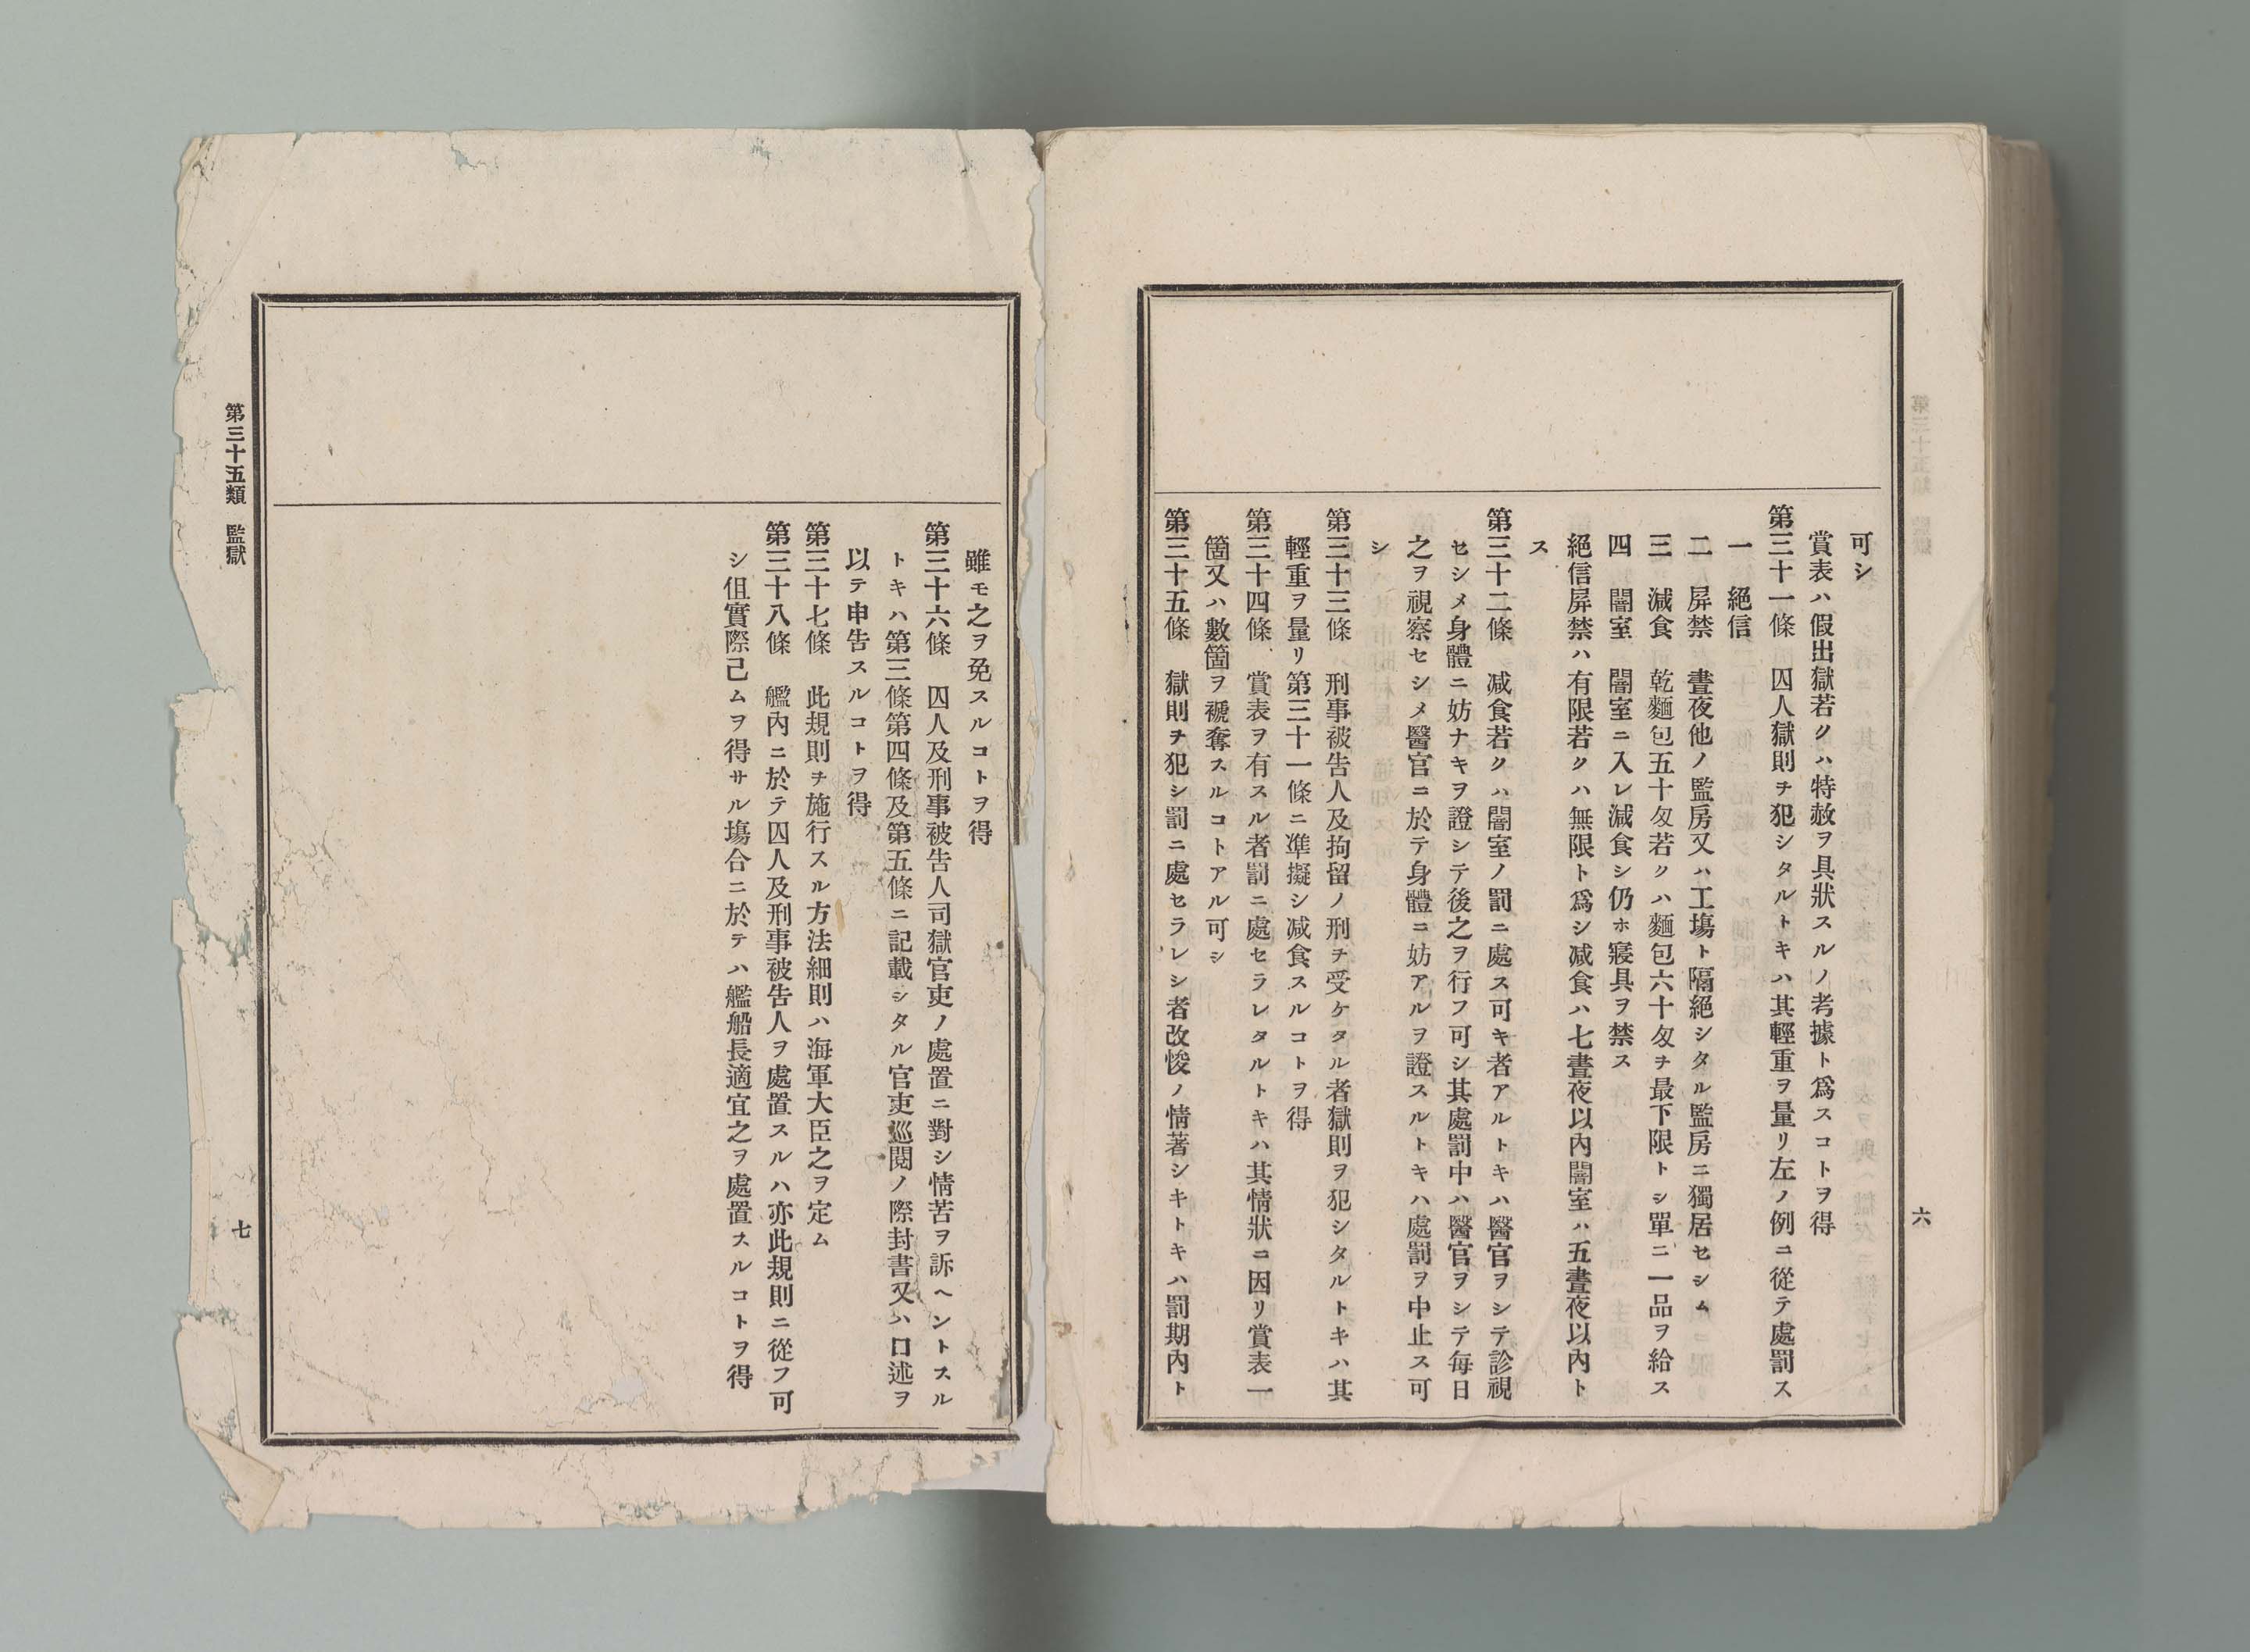 可シ
賞表ハ假出獄若クハ特赦ヲ具狀スルノ考據ト爲スコトヲ得
第三十一條　囚人獄則ヲ犯シタルトキハ其輕重ヲ量リ左ノ例ニ從テ處罰ス
一　絕信
二　屛禁　晝夜他ノ監房又ハ工塲ト隔絕シタル監房ニ獨居セシム
三　減食　乾麵包五十匁若クハ麵包六十匁ヲ最下限トシ單ニ一品ヲ給ス
四　闇室　闇室ニ入レ減食シ仍ホ寢具ヲ禁ス
絕信屛禁ハ有限若クハ無限ト爲シ減食ハ七晝夜以內闇室ハ五晝夜以內ト
ス
第三十二條　減食若クハ闇室ノ罰ニ處ス可キ者アルトキハ醫官ヲシテ診視
セシメ身體ニ妨ナキヲ證シテ後之ヲ行フ可シ其處罰中ハ醫官ヲシテ每日
之ヲ視察セシメ醫官ニ於テ身體ニ妨アルヲ證スルトキハ處罰ヲ中止ス可
シ
第三十三條　刑事被告人及拘留ノ刑ヲ受ケタル者獄則ヲ犯シタルトキハ其
輕重ヲ量リ第三十一條ニ準擬シ減食スルコトヲ得
第三十四條　賞表ヲ有スル者罰ニ處セラレタルトキハ其情狀ニ因リ賞表一
箇又ハ數箇ヲ褫奪スルコトアル可シ
第三十五條　獄則ヲ犯シ罰ニ處セラレシ者改悛ノ情著シキトキハ罰期內ト
六
雖モ之ヲ免スルコトヲ得
第三十六條　囚人及刑事被告人司獄官吏ノ處置ニ對シ情苦ヲ訴ヘントスル
トキハ第三條第四條及第五條ニ記載シタル官吏巡閱ノ際封書又ハ口述ヲ
以テ申告スルコトヲ得
第三十七條　此規則ヲ施行スル方法細則ハ海軍大臣之ヲ定ム
第三十八條　艦內ニ於テ囚人及刑事被告人ヲ處置スルハ亦此規則ニ從フ可
シ伹實際已ムヲ得サル塲合ニ於テハ艦船長適宜之ヲ處置スルコトヲ得
第三十五類　監獄
七